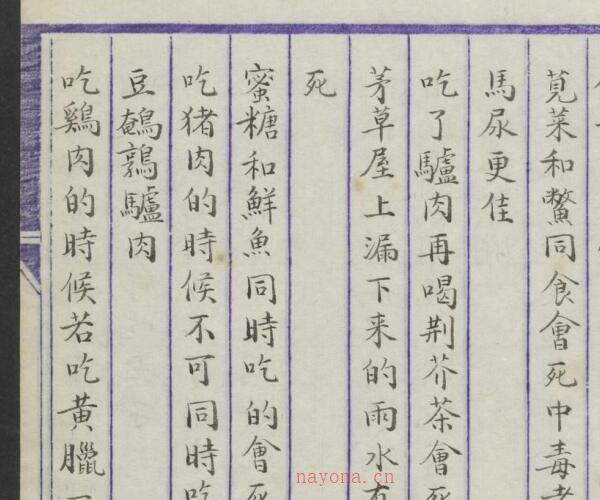 莧菜和鱉同食會死中毒者
馬尿更佳
吃了驢肉再喝荆芥茶會死
茅草屋上漏下来的雨水有
死
蜜糖和鮮魚同時吃的會死
吃猪肉的時候不可同時吃
豆鵪鶉驢肉
吃鷄肉的時候若吃黄臘
nayona.cn